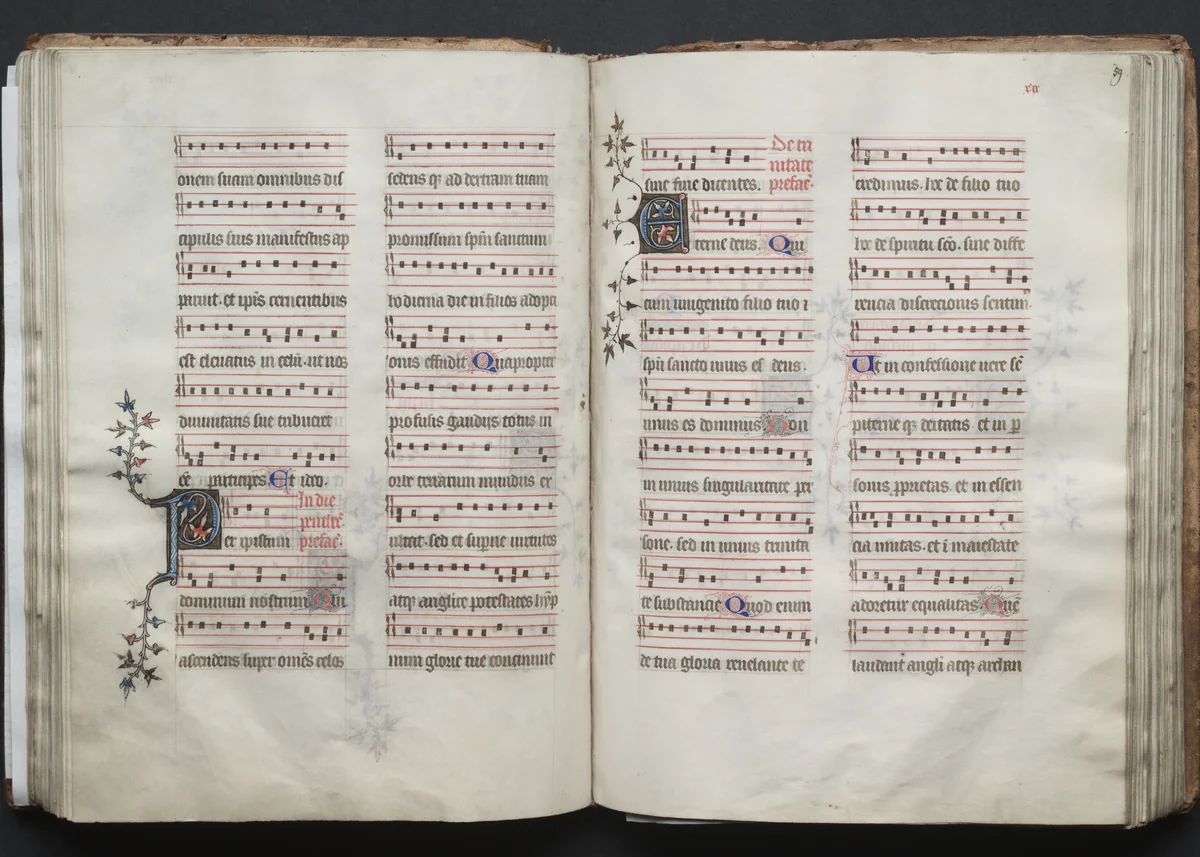 onem suam omnibus dis
cipulis suis manifestus ap
paruit. et ip̃is cernentibus
est eleuatus in celũ. ut nos
diuinitatis sue tribueret
ẽe participes. Et ideo.
In die
penthẽ.
prefac̃.
Per ip̃istum
dominum nostrum Qui
ascendens super om̃es celos
sedens q3 ad dexteram tuam
promissum sp̃m sanctum
hodierna die in filios adopti
onis effudit Quapropter
profusis gaudiis totus in
orbe terrarum mundus ex
ultat. sed et supne uirtutes
atq3 anglice potestates hyp
num glorie tue concinunt
xix
59
sine fine dicentes.
De tri
nitate
prefac̃.
Eterne deus. Qui
cum unigenito filio tuo ⁊
sp̃u sancto unus es deus.
unus es dominus Non
in unius singularitate per
sone. sed in unius trinita
te substancie Quod enim
de tua gloria reuelante te
credimus. hoc de filio tuo
hoc de spiritu sc̃o. sine diffe
rencia discrecionis sentim.
Ut in confessione uere sẽ
piterne q3 deitatis. et in p
sonis p̃prietas. et in essen
cia unitas. et ĩ maiestate
adoretur equalitas Quẽ
laudant angeli atq3 archan